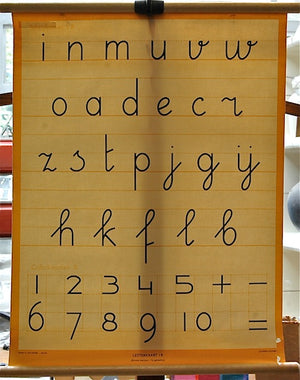 i n m u v w
o a d e c r
z s t p j g ij
h k f l b
1 2 3 4 5 + -
6 7 8 9 10 =
LETTERKAART I B